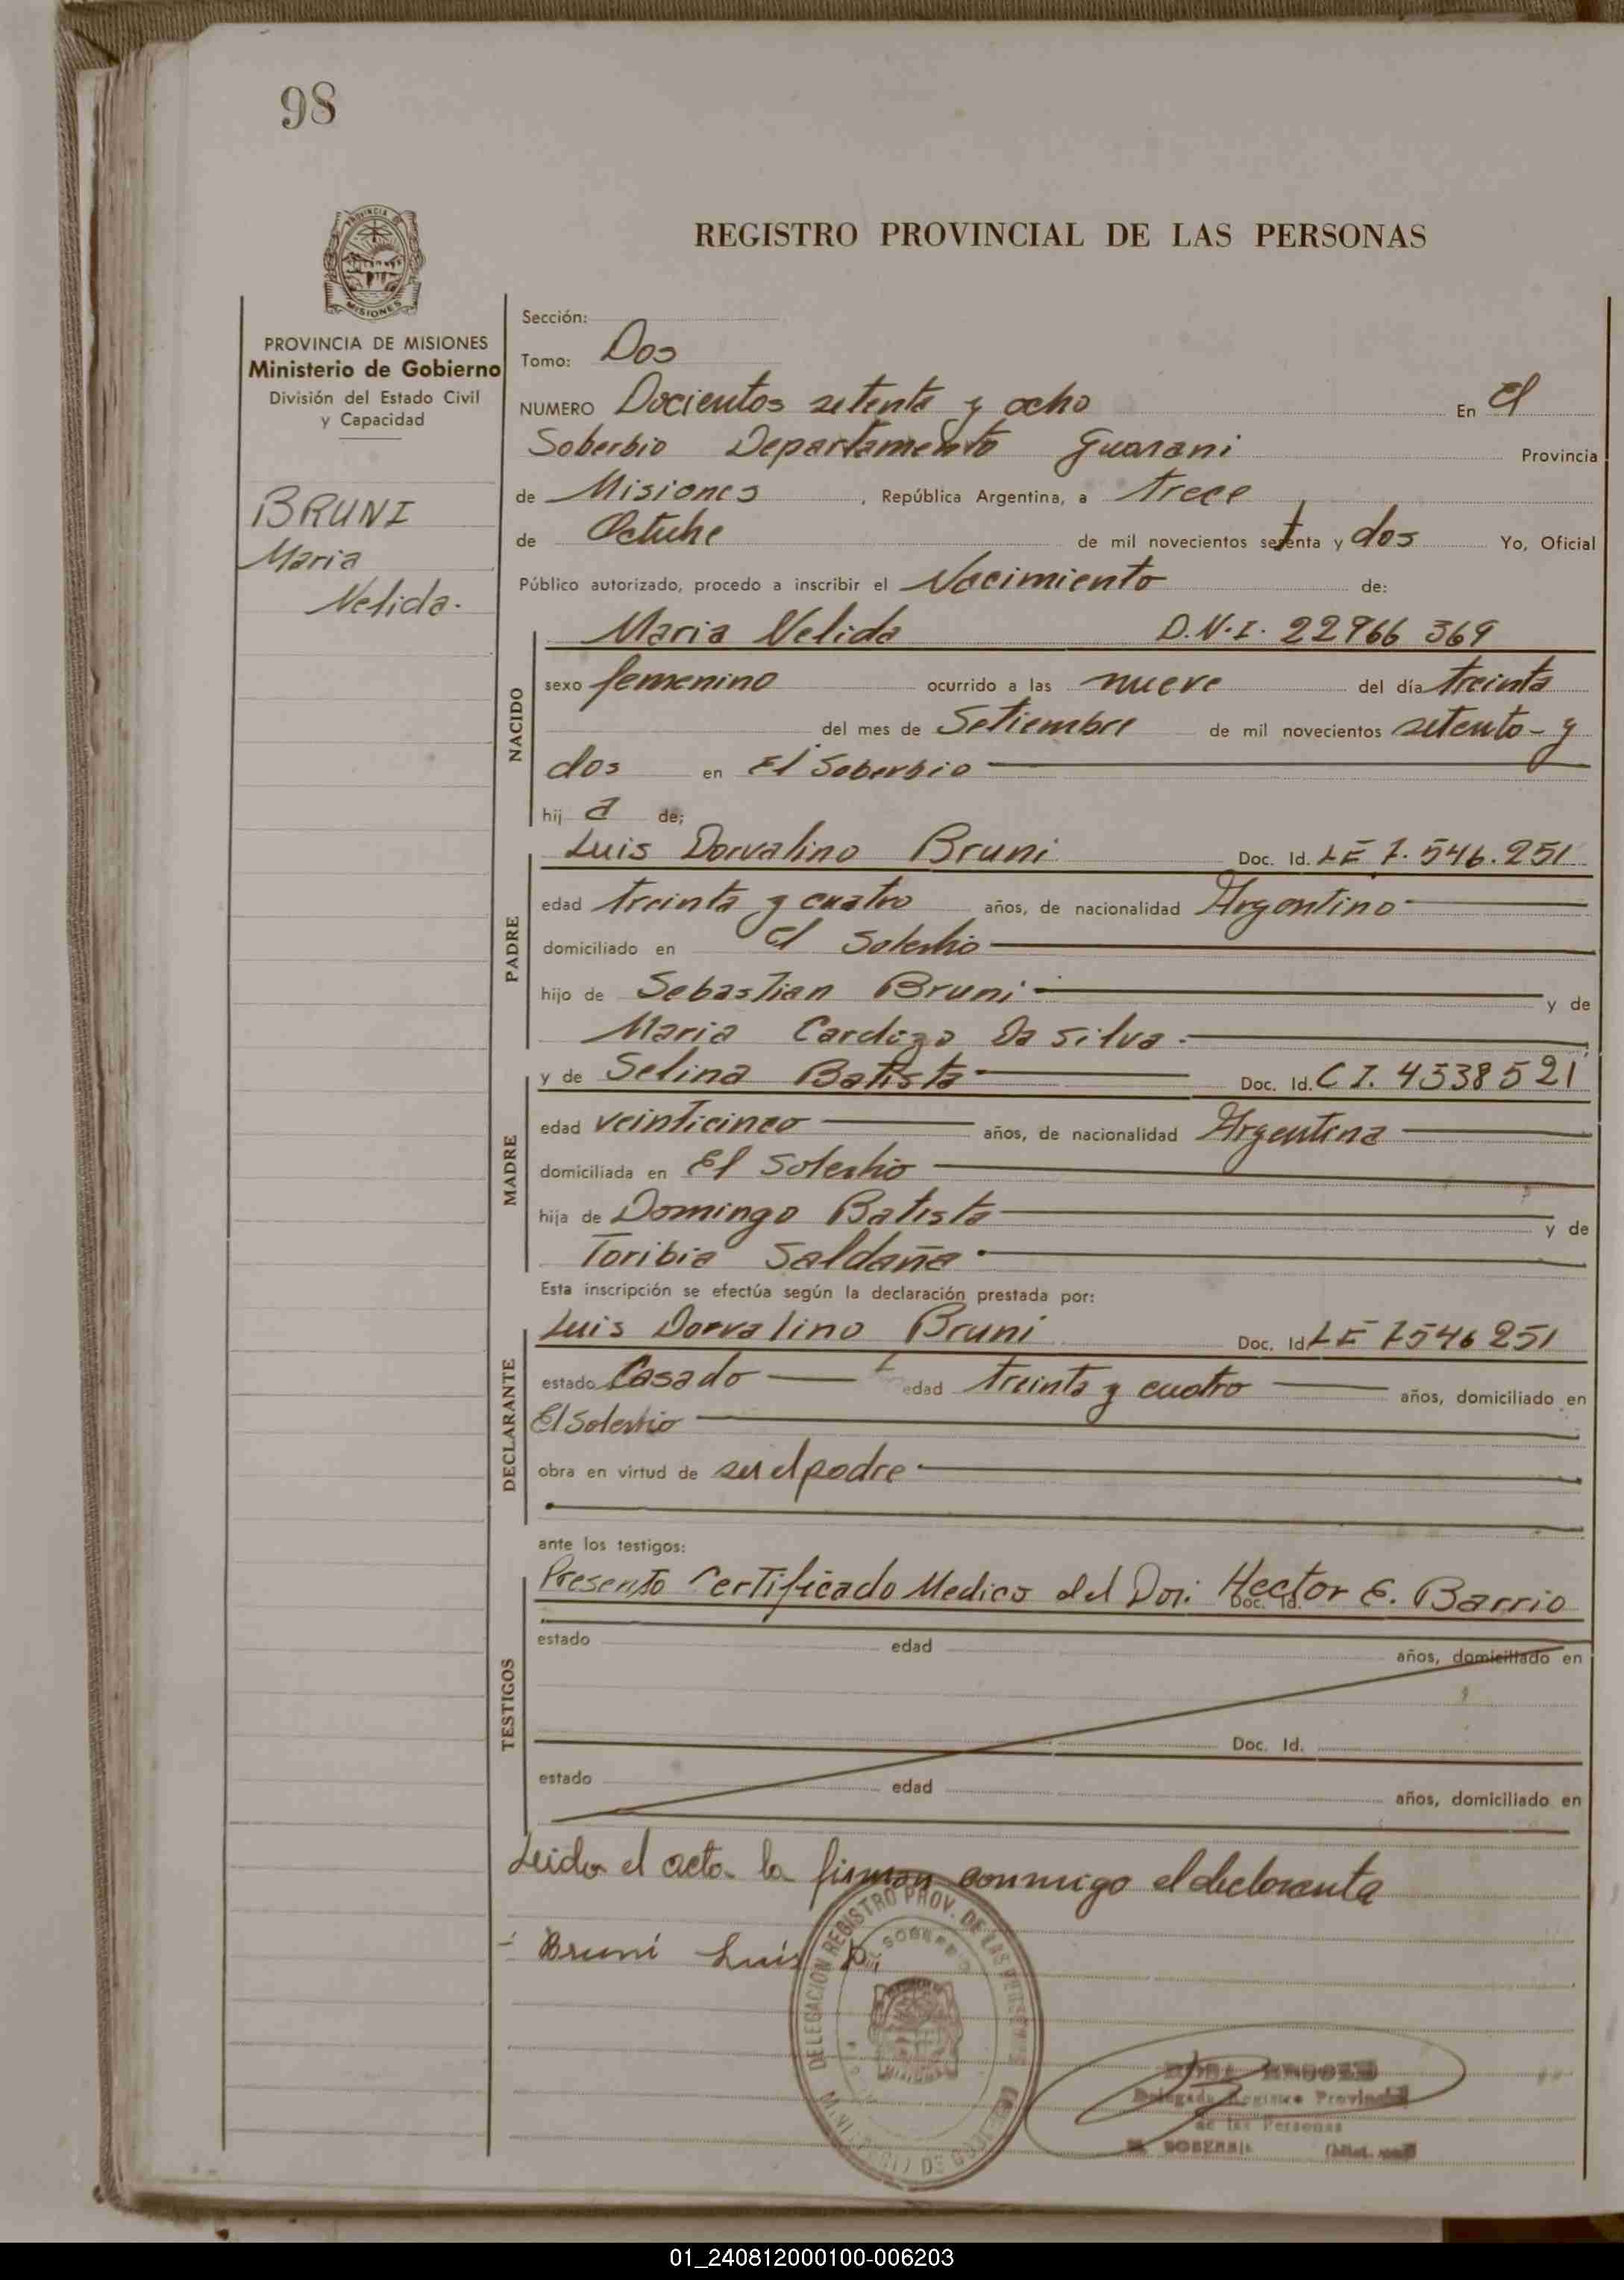 98
REGISTRO PROVINCIAL DE LAS PERSONAS
PROVINCIA DE
MISIONES
PROVINCIA DE MISIONES
Ministerio de Gobierno
División del Estado Civil
y Capacidad
BRUNI
Maria
Nelida.
Sección:
Tomo: Dos
NUMERO Docientos setenta y ocho En El
Soberbio Departamento Guarani Provincia
de Misiones, República Argentina, a trece
de Octubre de mil novecientos setenta y dos Yo, Oficial
Público autorizado, procedo a inscribir el Nacimiento de:
NACIDO
Maria Nelida D.N.I. 22966 369
sexo femenino ocurrido a las nueve del día treinta
del mes de Setiembre de mil novecientos setenta y
dos en El Soberbio
hij a de;
PADRE
Luis Dorvalino Bruni Doc. Id. LE 7.546.251
edad treinta y cuatro años, de nacionalidad Argentino
domiciliado en El Soberbio
hijo de Sebastian Bruni y de
Maria Cardozo Da Silva.
MADRE
y de Selina Batista Doc. Id. C I. 4538521
edad veinticinco años, de nacionalidad Argentina
domiciliada en El Soberbio
hija de Domingo Batista y de
Toribia Saldaña
Esta inscripción se efectúa según la declaración prestada por:
DECLARANTE
Luis Dorvalino Bruni Doc. Id. LE 7546251
estado Casado edad treinta y cuatro años, domiciliado en
El Soberbio
obra en virtud de ser el padre
ante los testigos:
TESTIGOS
Presento Certificado Medico del Dor. Hector E. Barrio
Doc. Id.
estado edad años, domiciliado en
Doc. Id.
estado edad años, domiciliado en
Leida el acta la firman conmigo el declarante
Bruni Luis D.
DELEGACION REGISTRO PROV. DE LAS PERSONAS
EL SOBERBIO
MISIONES
MINISTERIO DE GOBIERNO
Delegada Registro Provincial
de las Personas
EL SOBERBIO
01_240812000100-006203